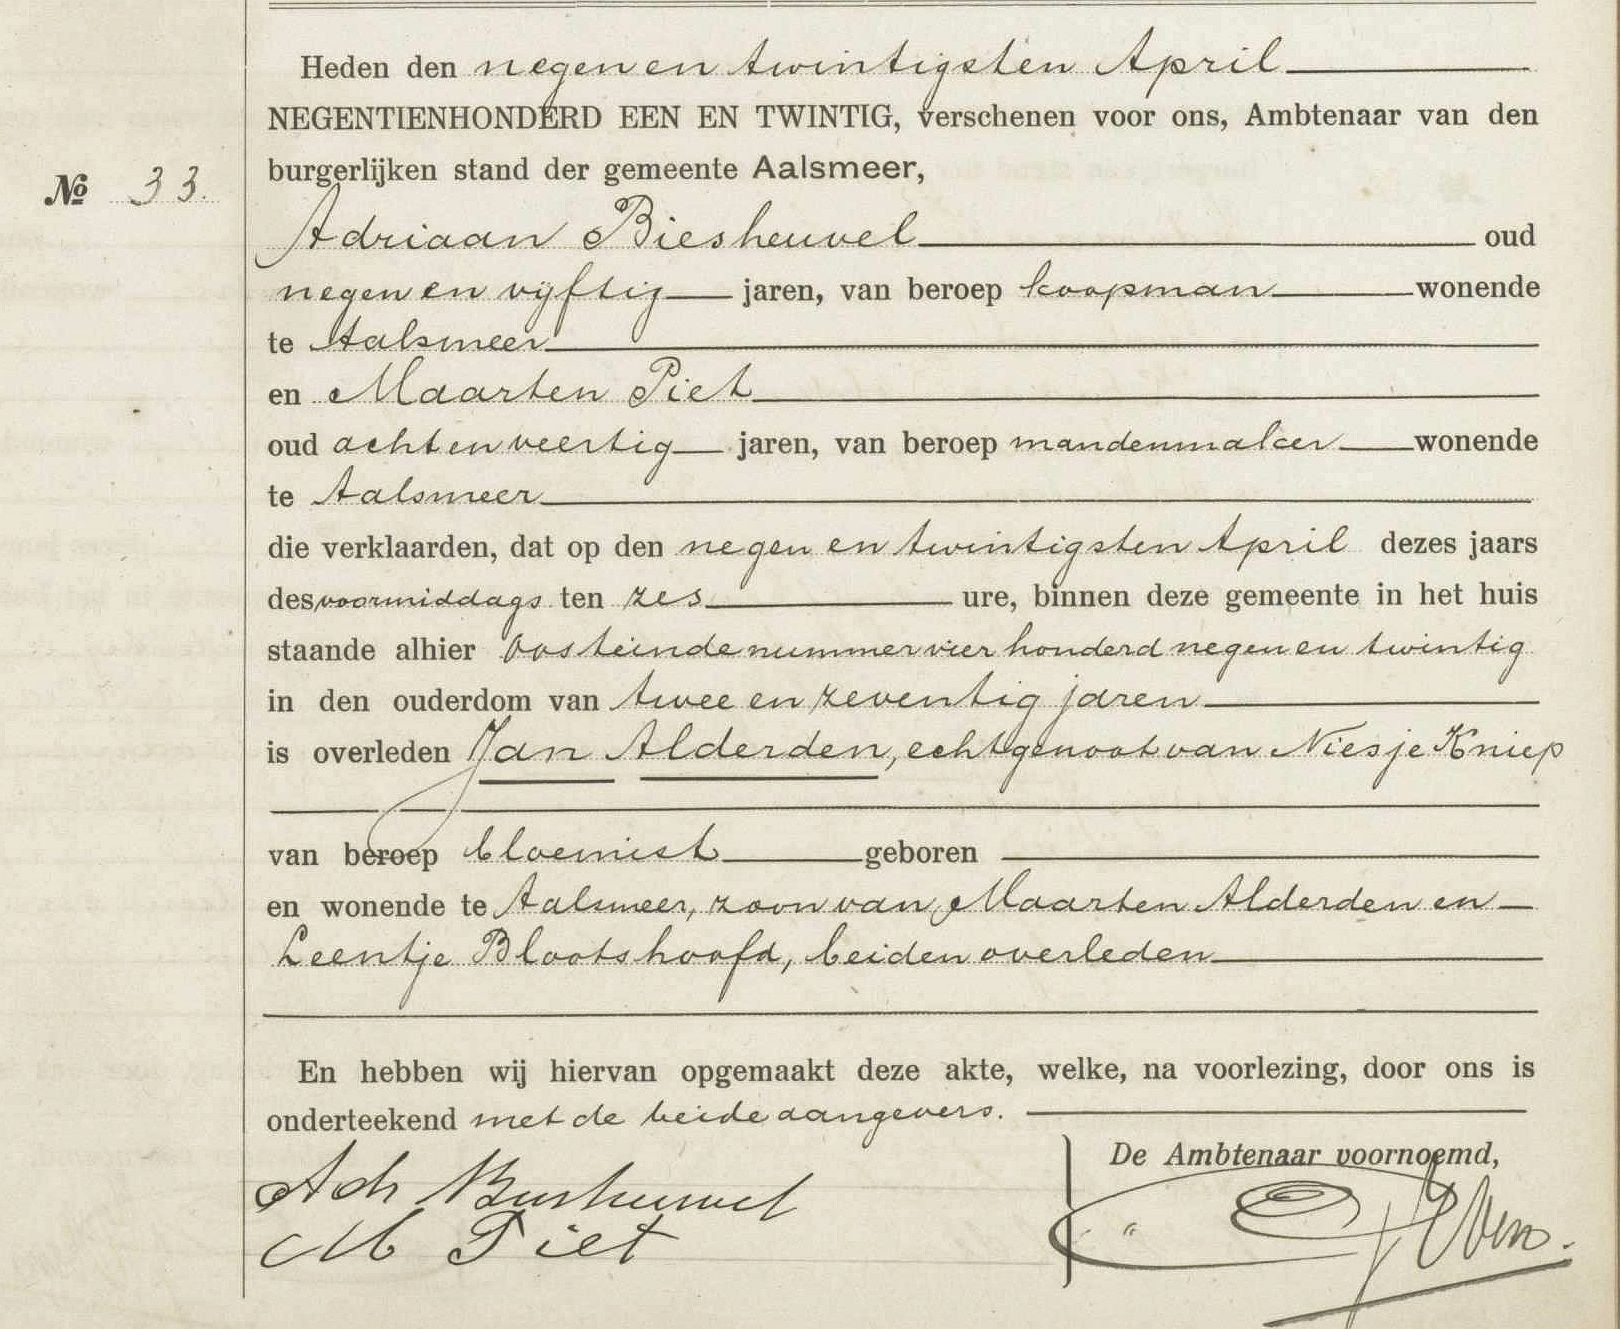 Heden den negen en twintigsten April
NEGENTIENHONDERD EEN EN TWINTIG, verschenen voor ons, Ambtenaar van den
burgerlijken stand der gemeente Aalsmeer,
№ 33.
Adriaan Biesheuvel oud
negen en vijftig jaren, van beroep koopman wonende
te Aalsmeer
en Maarten Piet
oud acht en veertig jaren, van beroep mandenmaker wonende
te Aalsmeer
die verklaarden, dat op den negen en twintigsten April dezes jaars
des voormiddags ten zes ure, binnen deze gemeente in het huis
staande alhier Oosteinde nummer vier honderd negen en twintig
in den ouderdom van twee en zeventig jaren
is overleden Jan Alderden, echtgenoot van Niesje Kniep
van beroep bloemist geboren
en wonende te Aalsmeer, zoon van Maarten Alderden en
Leentje Blootshoofd, beiden overleden
En hebben wij hiervan opgemaakt deze akte, welke, na voorlezing, door ons is
onderteekend met de beide aangevers.
De Ambtenaar voornoemd,
Adr Biesheuvel
M Piet